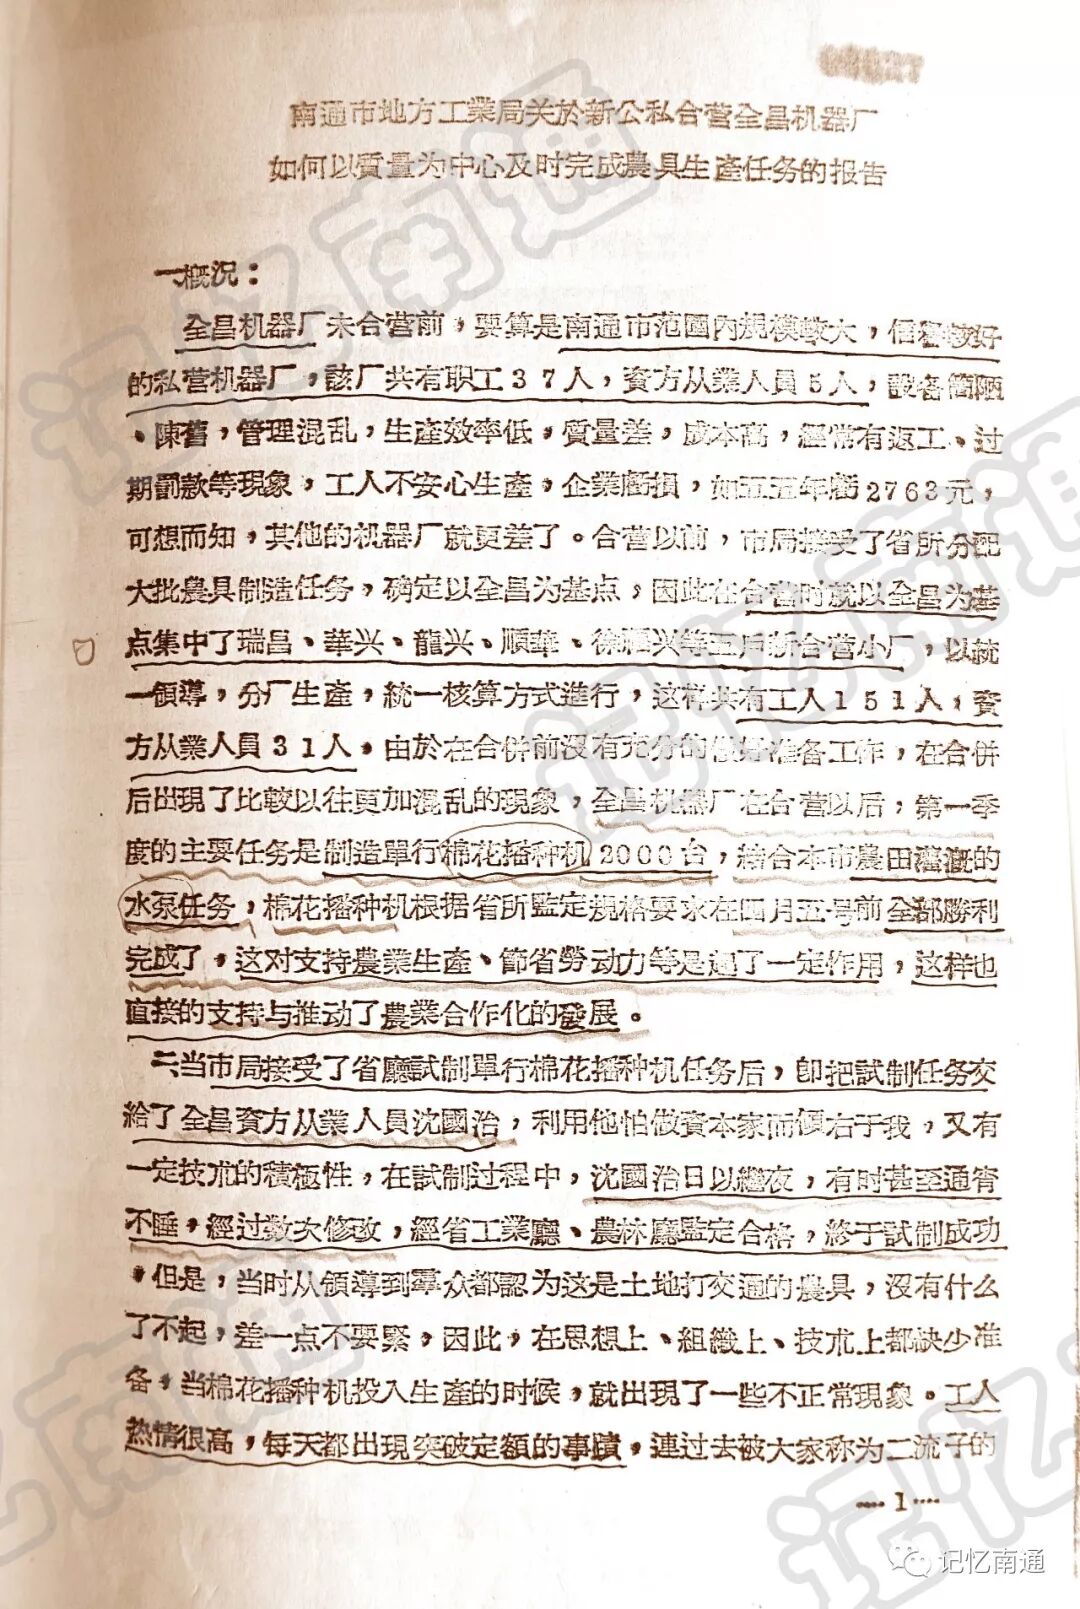 南通市地方工業局关於新公私合营全昌机器厂
如何以質量为中心及时完成農具生產任务的报告
一、概況：
全昌机器厂未合营前，要算是南通市范圍內規模較大，信譽較好
的私营机器厂，該厂共有职工37人，資方从業人員5人，設备簡陋
、陳舊，管理混乱，生產效率低，質量差，成本高，經常有返工、过
期罰款等現象，工人不安心生產，企業虧損，如五五年虧2763元，
可想而知，其他的机器厂就更差了。合营以前，市局接受了省所分配
大批農具制造任务，确定以全昌为基点，因此在合营时就以全昌为基
点集中了瑞昌、華兴、龍兴、順華、徐順兴等五戶新合营小厂，以統
一領導，分厂生產，統一核算方式進行，这样共有工人151人，資
方从業人員31人。由於在合併前沒有充分的做好准备工作，在合併
后出現了比較以往更加混乱的現象，全昌机器厂在合营以后，第一季
度的主要任务是制造單行棉花播种机2000台，結合本市農田灌溉的
水泵任务，棉花播种机根据省所監定規格要求在四月五号前全部勝利
完成了，这对支持農業生產、節省勞动力等是起了一定作用，这样也
直接的支持与推动了農業合作化的發展。
二、当市局接受了省廳試制單行棉花播种机任务后，卽把試制任务交
給了全昌資方从業人員沈國治，利用他怕做資本家而傾右于我，又有
一定技朮的積極性，在試制过程中，沈國治日以繼夜，有时甚至通宵
不睡，經过数次修改，經省工業廳、農林廳監定合格，終于試制成功
，但是，当时从領導到羣众都認为这是土地打交通的農具，沒有什么
了不起，差一点不要緊，因此，在思想上、組織上、技朮上都缺少准
备，当棉花播种机投入生產的时候，就出現了一些不正常現象。工人
热情很高，每天都出現突破定額的事蹟，連过去被大家称为二流子的
1
记忆南通
记忆南通
记忆南通
记忆南通
记忆南通